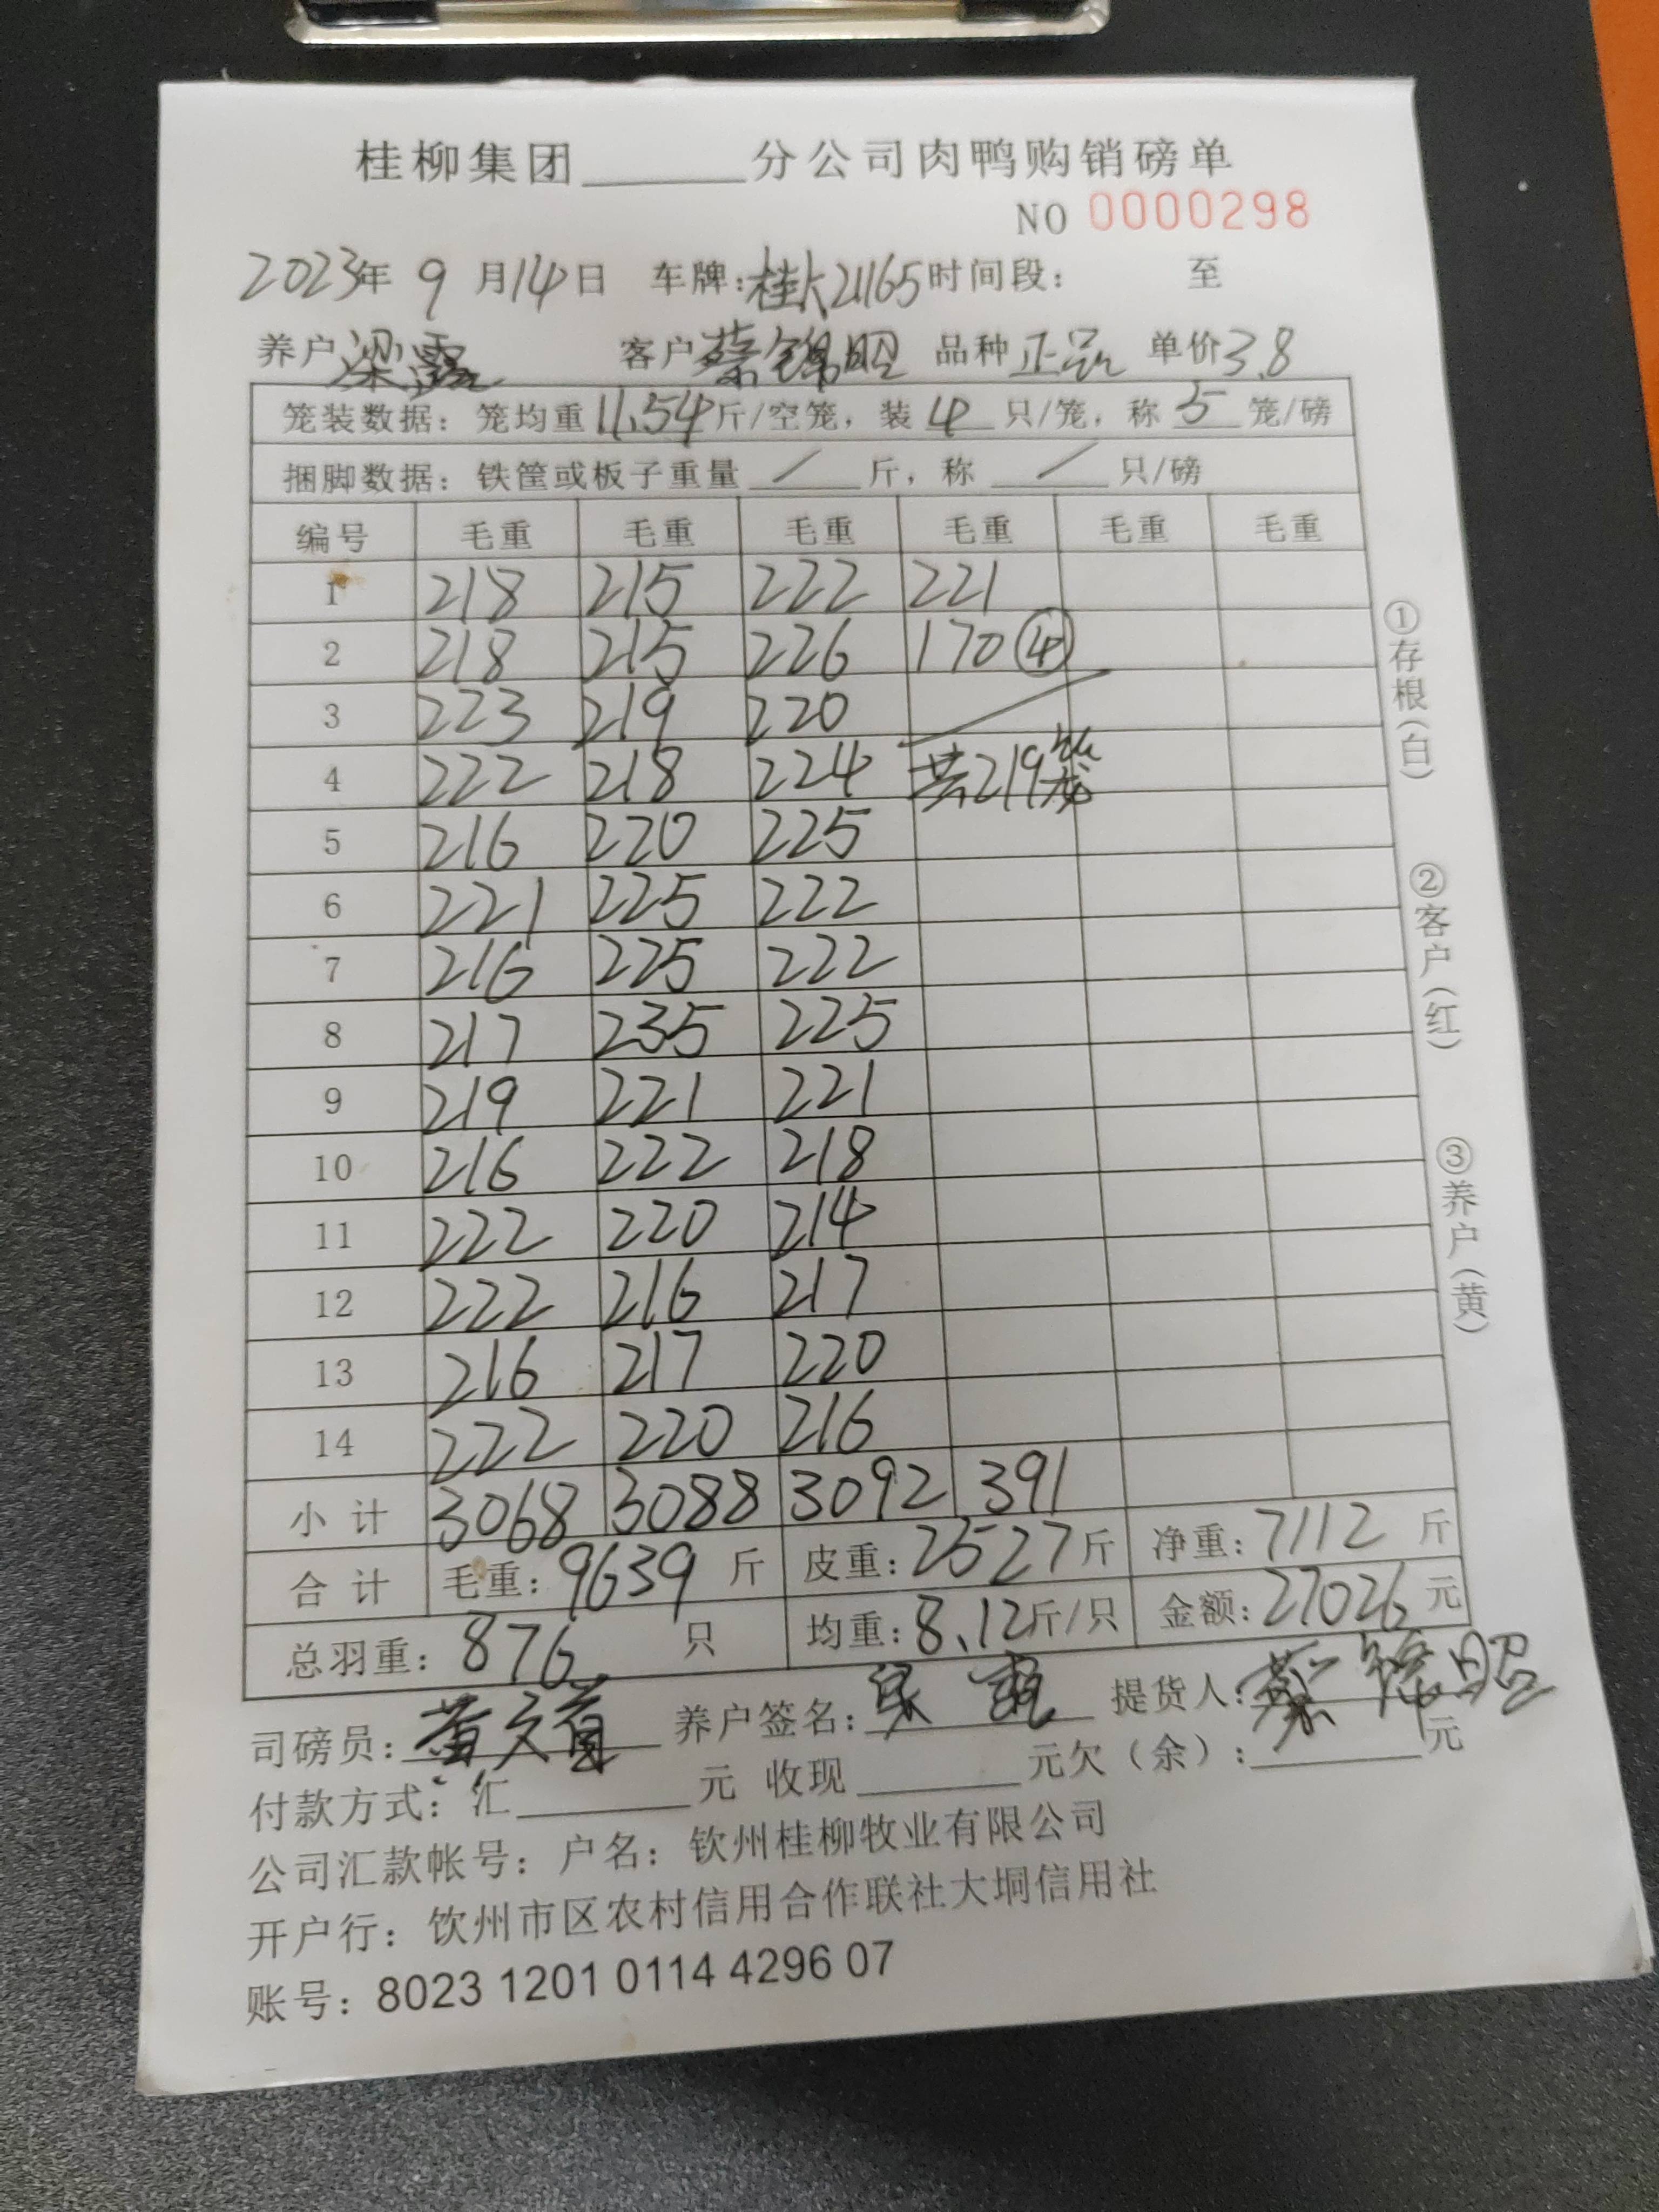 桂柳集团______分公司肉鸭购销磅单
NO 0000298
2023年 9 月14日 车牌:桂 21165 时间段: 至
养户 梁露 客户 蔡锦昭 品种 正品 单价3.8
笼装数据: 笼均重 11.54 斤/空笼, 装 4 只/笼, 称 5 笼/磅
捆脚数据: 铁筐或板子重量 / 斤, 称 / 只/磅
编号 毛重 毛重 毛重 毛重 毛重 毛重
1 218 215 222 221
2 218 215 226 170 ④
3 223 219 220
4 222 218 224 共219笼
5 216 220 225
6 221 225 222
7 216 225 222
8 217 235 225
9 219 221 221
10 216 222 218
11 222 220 214
12 222 216 217
13 216 217 220
14 222 220 216
小计 3068 3088 3092 391
合计 毛重: 9639 斤 皮重: 2527 斤 净重: 7112 斤
总羽重: 876 只 均重: 8.12 斤/只 金额: 27026 元
司磅员: 黄文 养户签名: 提货人: 蔡锦昭
付款方式: 汇______元 收现______元欠(余): ______元
公司汇款帐号: 户名: 钦州桂柳牧业有限公司
开户行: 钦州市区农村信用合作联社大垌信用社
账号: 8023 1201 0114 4296 07
①存根(白)
②客户(红)
③养户(黄)